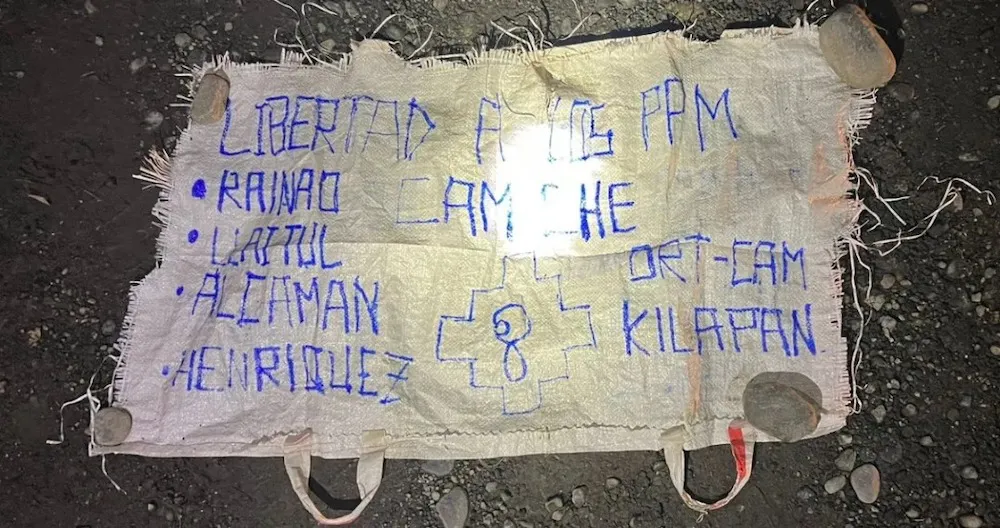 LIBERTAD A LOS PPM
• RAINAO
• LLAITUL
• ALCAMAN
• HENRIQUEZ
ORT-CAM
KILAPAN